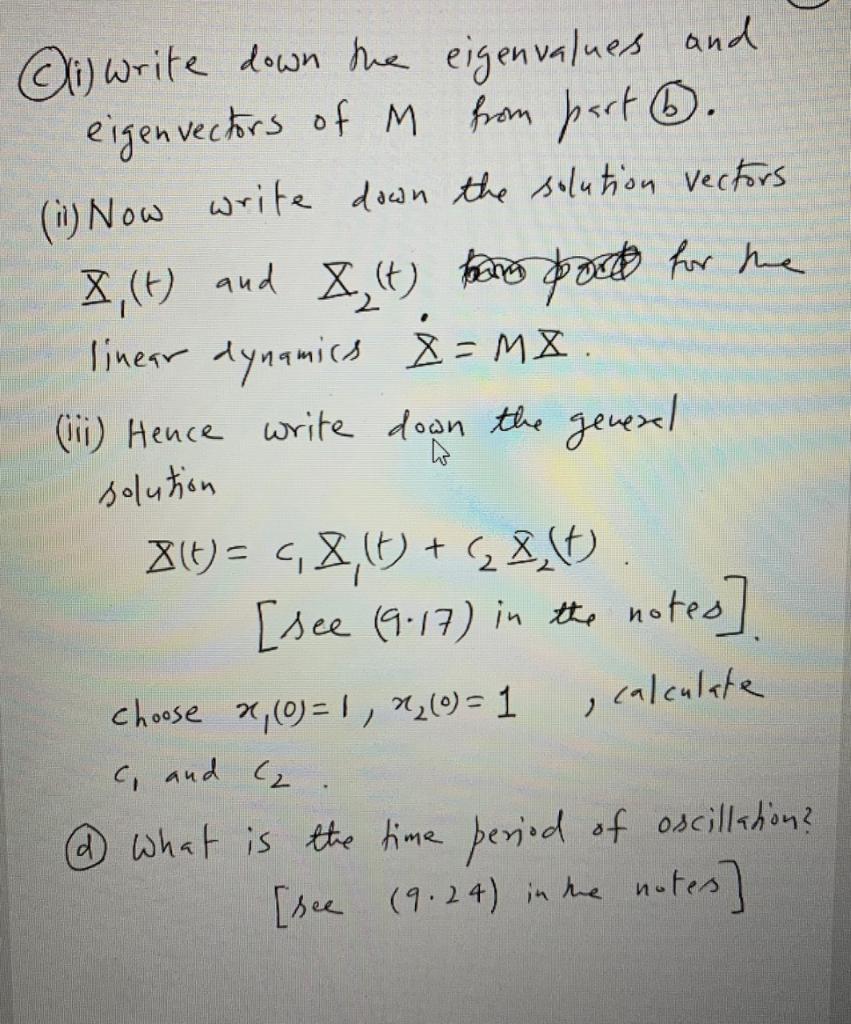 ⓒ(i) Write down the eigenvalues and
eigenvectors of M from part ⓑ.
(ii) Now write down the solution vectors
X₁(t) and X₂(t) for the
linear dynamics Ẋ = MX.
(iii) Hence write down the general
solution
X(t) = c₁ X₁(t) + c₂ X₂(t).
[see (9.17) in the notes].
choose x₁(0) = 1, x₂(0) = 1 , calculate
c₁ and c₂.
ⓓ What is the time period of oscillation?
[see (9.24) in the notes]